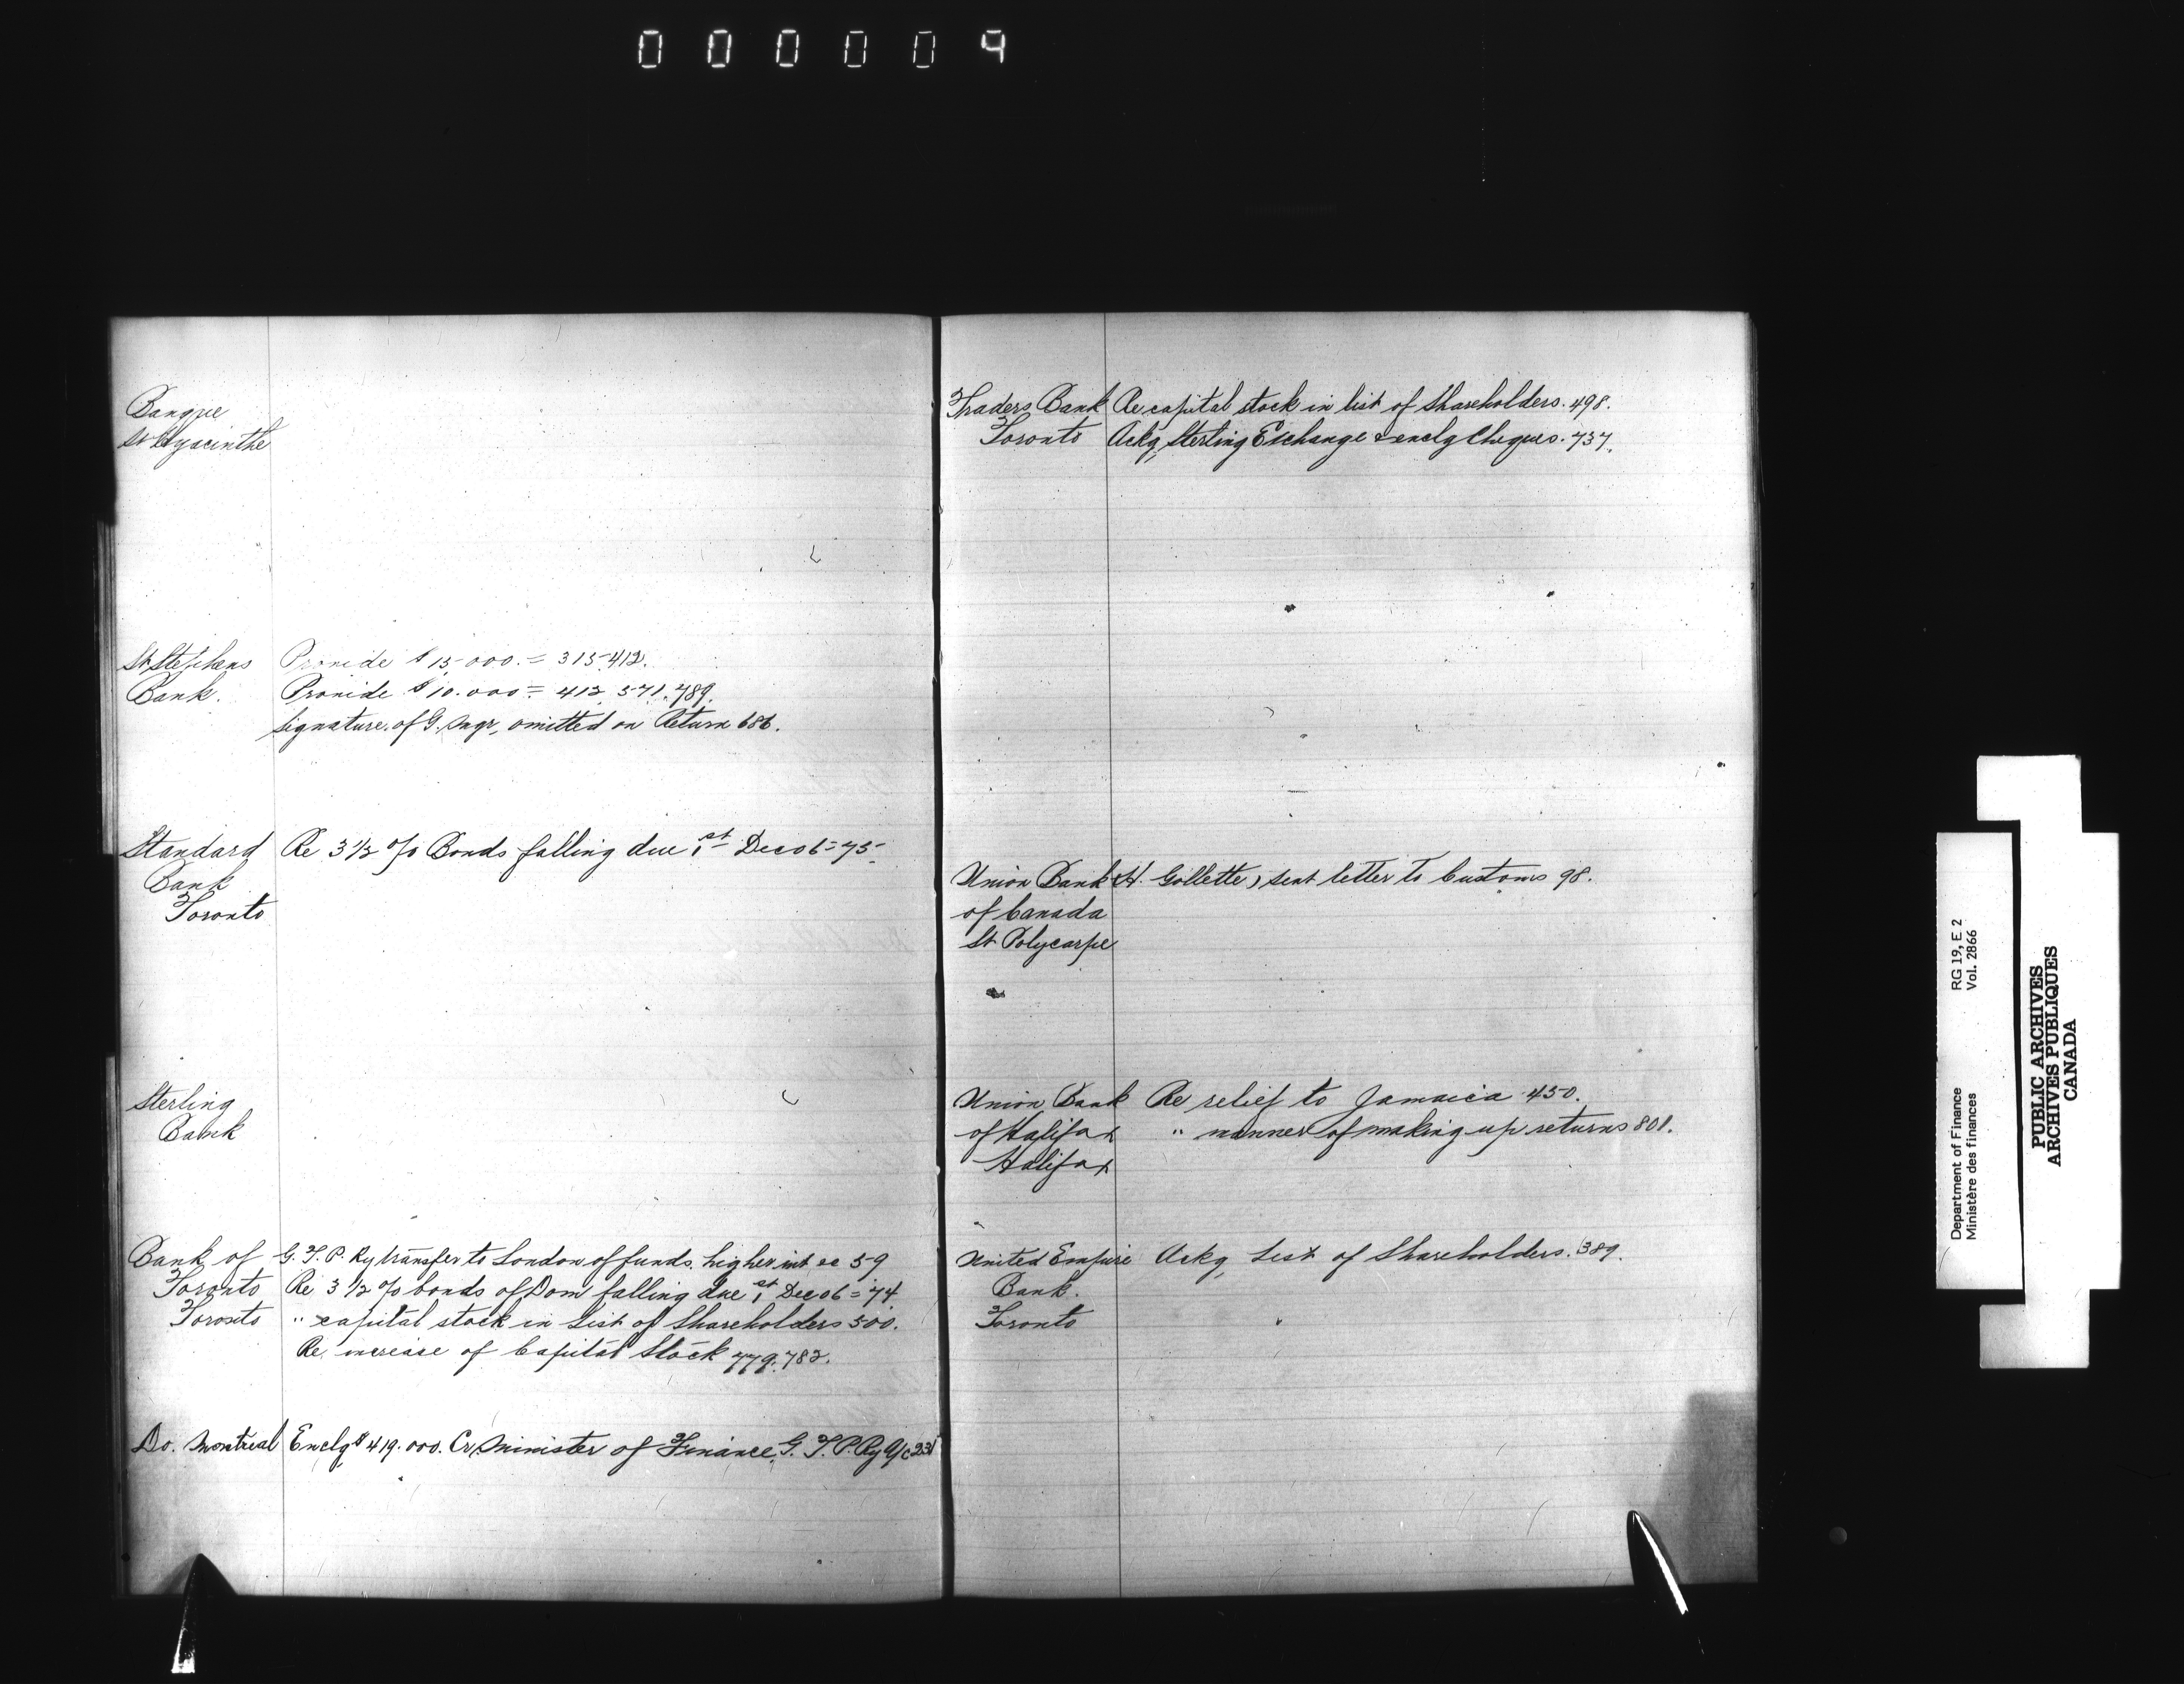 000009
Banque
St Hyacinthe
St Stephens Provide $15.000. = 315.412.
Bank. Provide $10.000 = 412 571.789.
Signature of G. Mgr, omitted on Return 686.
Standard Re 3 1/2 % Bonds falling due 1st Dec 06 = 75
Bank
Toronto
Sterling
Bank
Bank of G. T. P. Ry transfer to London of funds. higher int 59
Toronto Re 3 1/2 % bonds of Dom falling due 1st Dec 06 = 74
Toronto " capital stock in List of Shareholders 500.
Re increase of Capital Stock 779.782.
Do. Montreal Enclg $419.000. Cr Minister of Finance, G. T. P. Ry a/c 231
Traders Bank Re capital stock in list of Shareholders. 498.
Toronto Ackg Sterling Exchange & enclg Cheques. 737.
Union Bank (H. Gollette) sent letter to Customs 98.
of Canada
St Polycarpe
Union Bank Re relief to Jamaica 450.
of Halifax " manner of making up returns 801.
Halifax
United Empire Ackg List of Shareholders. 389.
Bank.
Toronto
Department of Finance RG 19, E 2
Ministère des finances Vol. 2866
PUBLIC ARCHIVES
ARCHIVES PUBLIQUES
CANADA